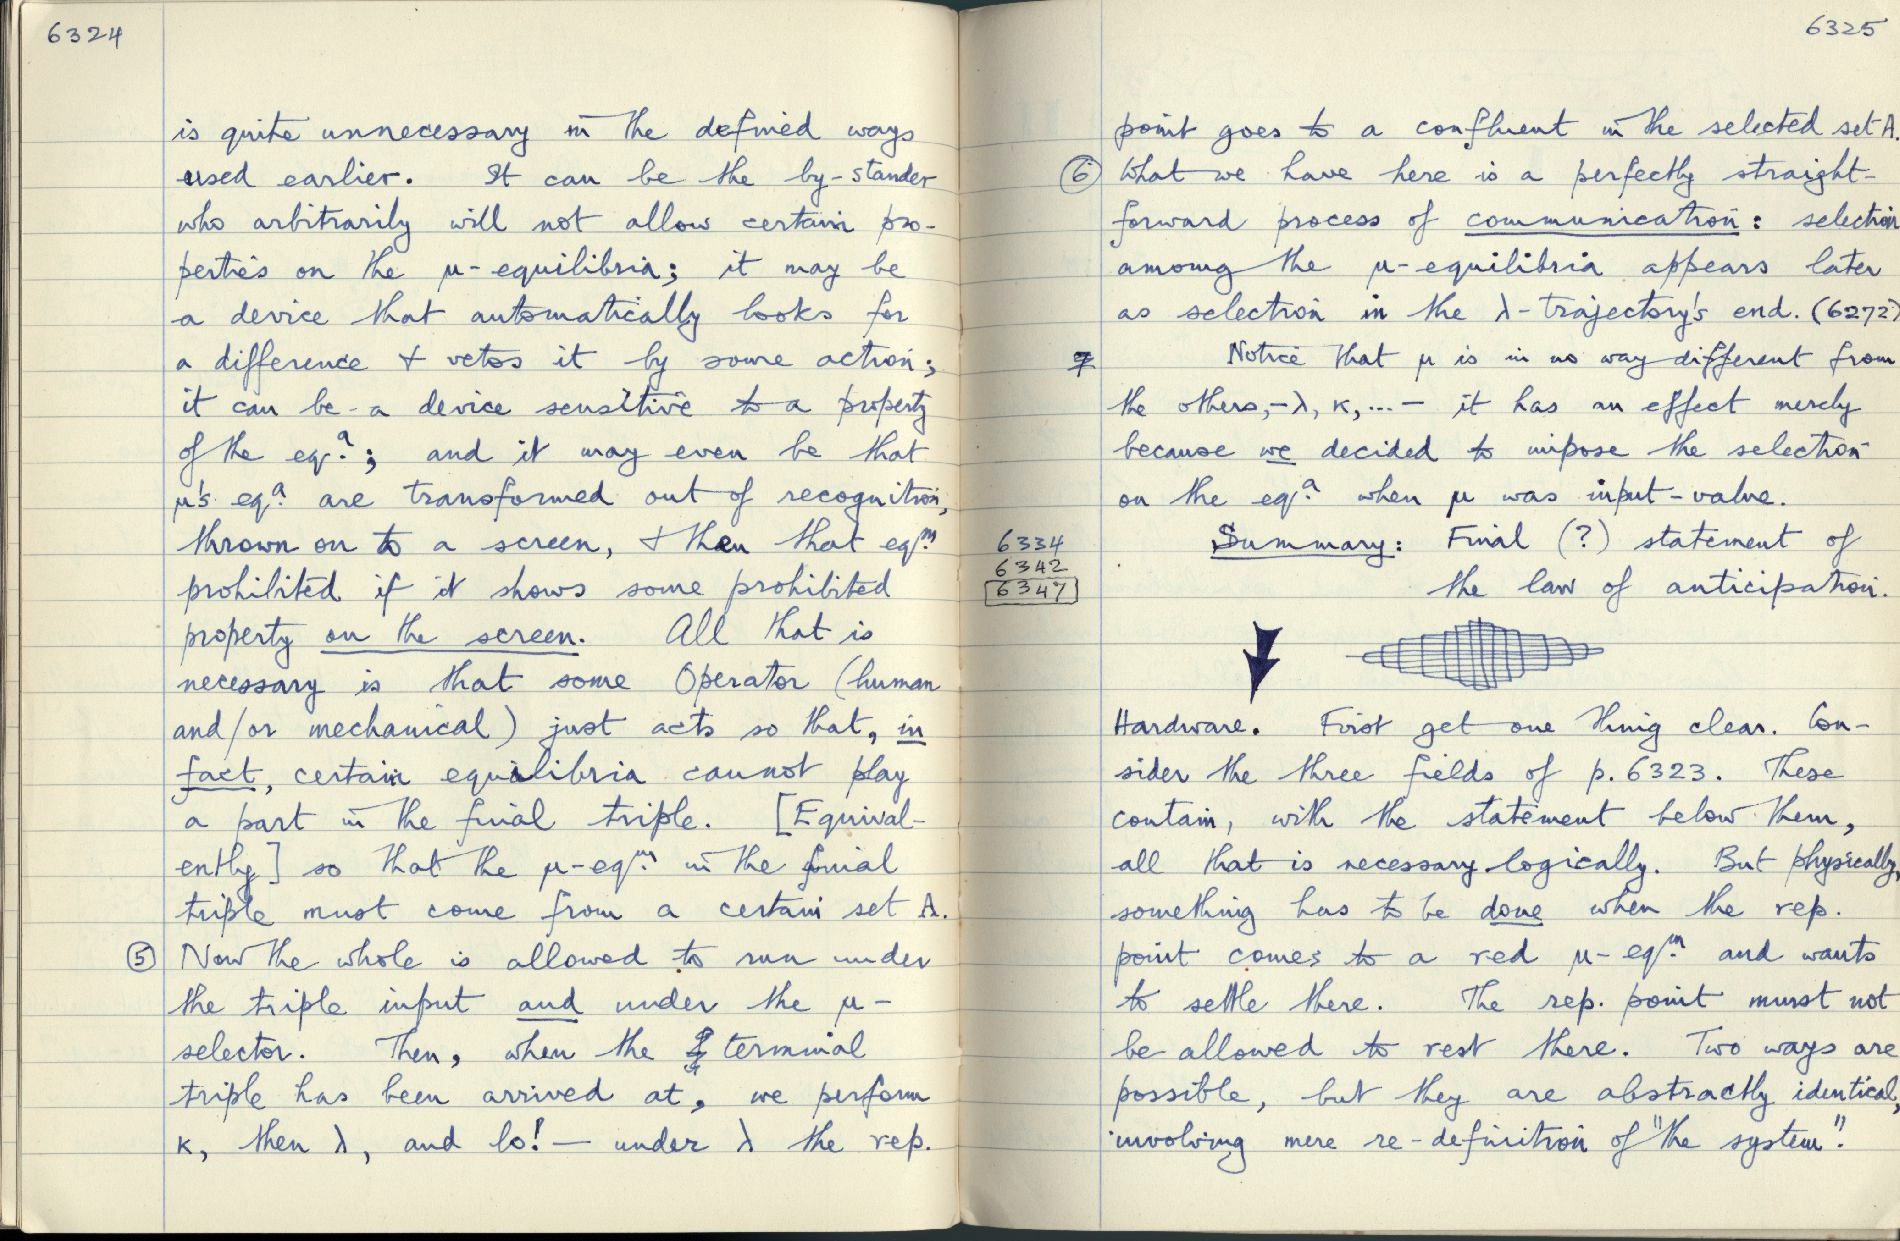 6324
is quite unnecessary in the defined ways
used earlier. It can be the by-stander
who arbitrarily will not allow certain pro-
perties on the μ-equilibria; it may be
a device that automatically looks for
a difference & vetos it by some action;
it can be a device sensitive to a property
of the eqᵃ.; and it may even be that
μ's eqᵃ. are transformed out of recognition,
thrown on to a screen, & then that eqᵐ.
prohibited if it shows some prohibited
property on the screen. All that is
necessary is that some Operator (human
and/or mechanical) just acts so that, in
fact, certain equilibria cannot play
a part in the final triple. [Equival-
ently] so that the μ-eqᵐ. in the final
triple must come from a certain set A.
⑤ Now the whole is allowed to run under
the triple input and under the μ-
selector. Then, when the terminal
triple has been arrived at, we perform
κ, then λ, and lo! — under λ the rep.
6325
point goes to a confluent in the selected set A.
⑥ What we have here is a perfectly straight-
forward process of communication: selection
among the μ-equilibria appears later
as selection in the λ-trajectory's end. (6272)
7 Notice that μ is in no way different from
the others, - λ, κ, ... - it has an effect merely
because we decided to impose the selection
on the eqᵃ. when μ was input-value.
Summary: Final (?) statement of
6334
6342
the law of anticipation.
6347
Hardware. First get one thing clear. Con-
sider the three fields of p. 6323. These
contain, with the statement below them,
all that is necessary logically. But physically,
something has to be done when the rep.
point comes to a red μ-eqᵐ. and wants
to settle there. The rep. point must not
be allowed to rest there. Two ways are
possible, but they are abstractly identical,
involving mere re-definition of "the system".